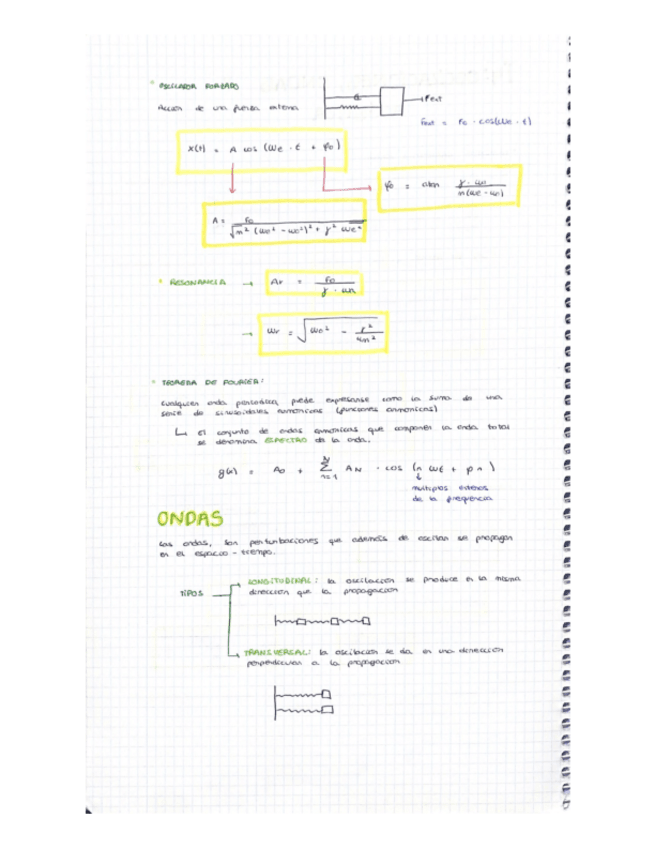 OSCILADOR FORZADO
Acción de una fuerza externa
Fext
Fext = F0 · cos(We · t)
x(t) = A cos (We · t + φ0)
φ0 = atan γ · Wn / m(We - Wn)
A = F0 / √m² (W0² - We²)² + γ² We²
RESONANCIA → Ar = F0 / γ · Wn
→ Wr = √W0² - γ² / 4m²
TEOREMA DE FOURIER:
Cualquier onda periodica, puede expresarse como la suma de una
serie de sinusoidales armonicas (funciones armonicas)
↳ El conjunto de ondas armonicas que componen la onda total
se denomina ESPECTRO de la onda.
g(x) = A0 + N Σ n=1 AN · cos (n ωt + φn)
multiplos enteros
de la frecuencia
ONDAS
Las ondas, son perturbaciones que además de oscilar se propagan
en el espacio - tiempo.
TIPOS
LONGITUDINAL: la oscilación se produce en la misma
dirección que la propagacion
TRANSVERSAL: la oscilación se da en una dirección
perpendicular a la propagación